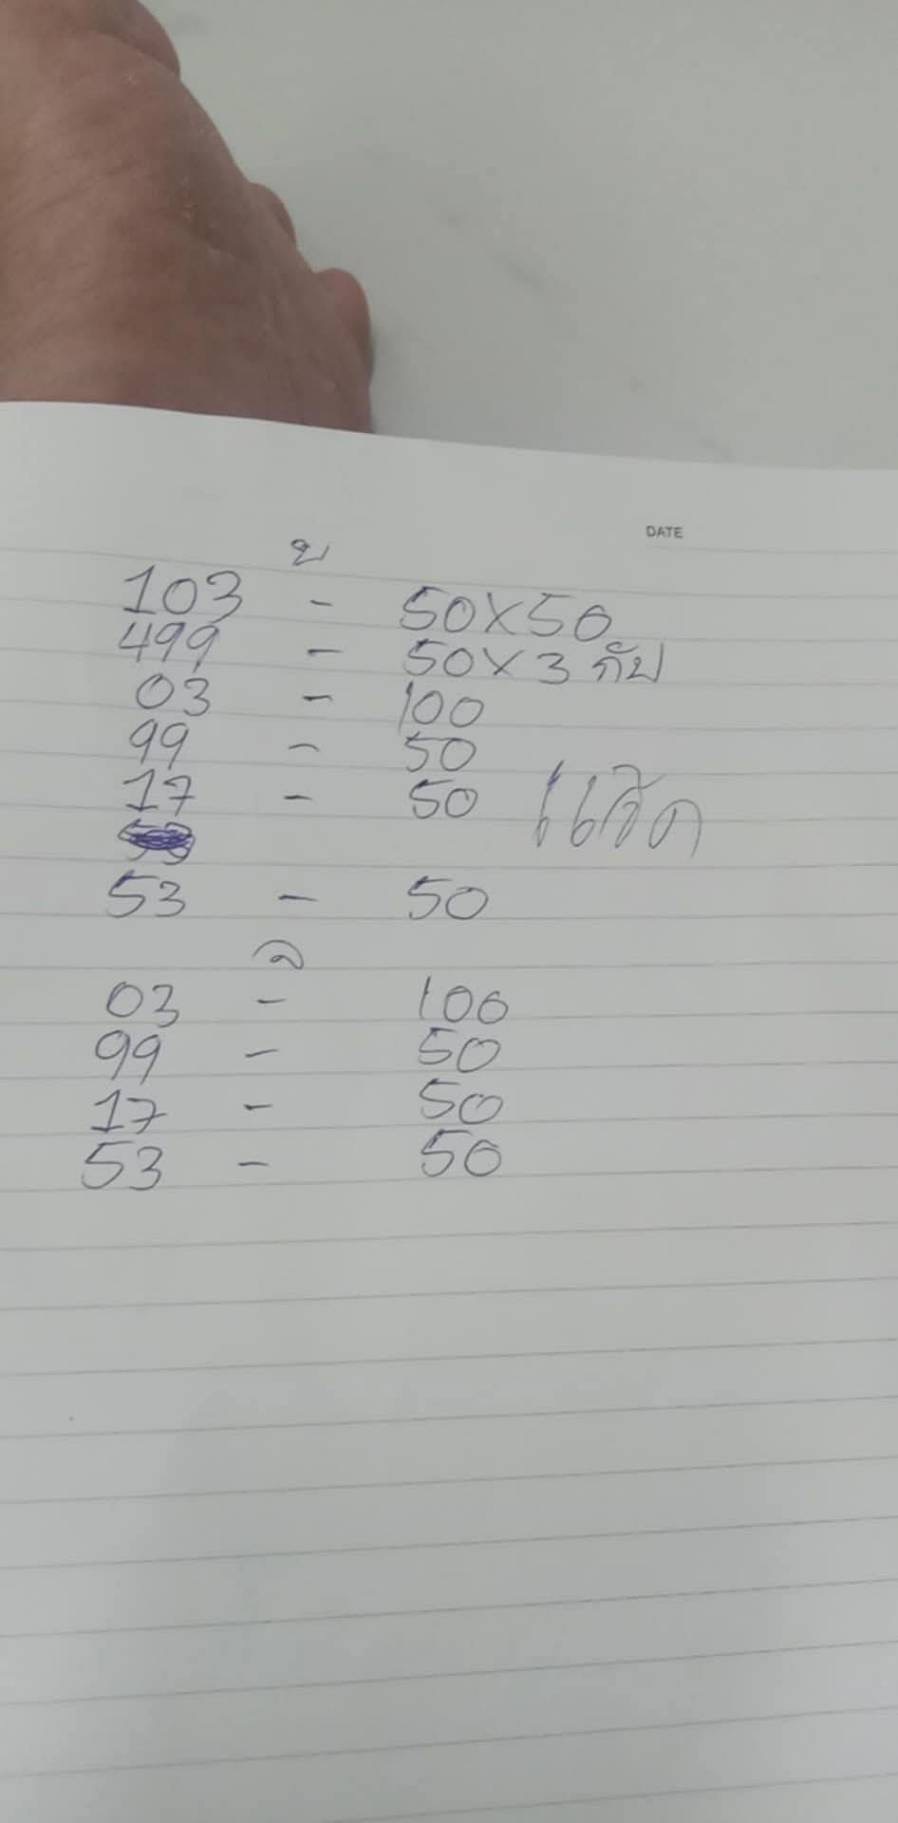 DATE
บ
103 - 50x50
499 - 50x3 กับ
03 - 100
99 - 50
17 - 50
53 - 50
ล
03 - 100
99 - 50
17 - 50
53 - 50